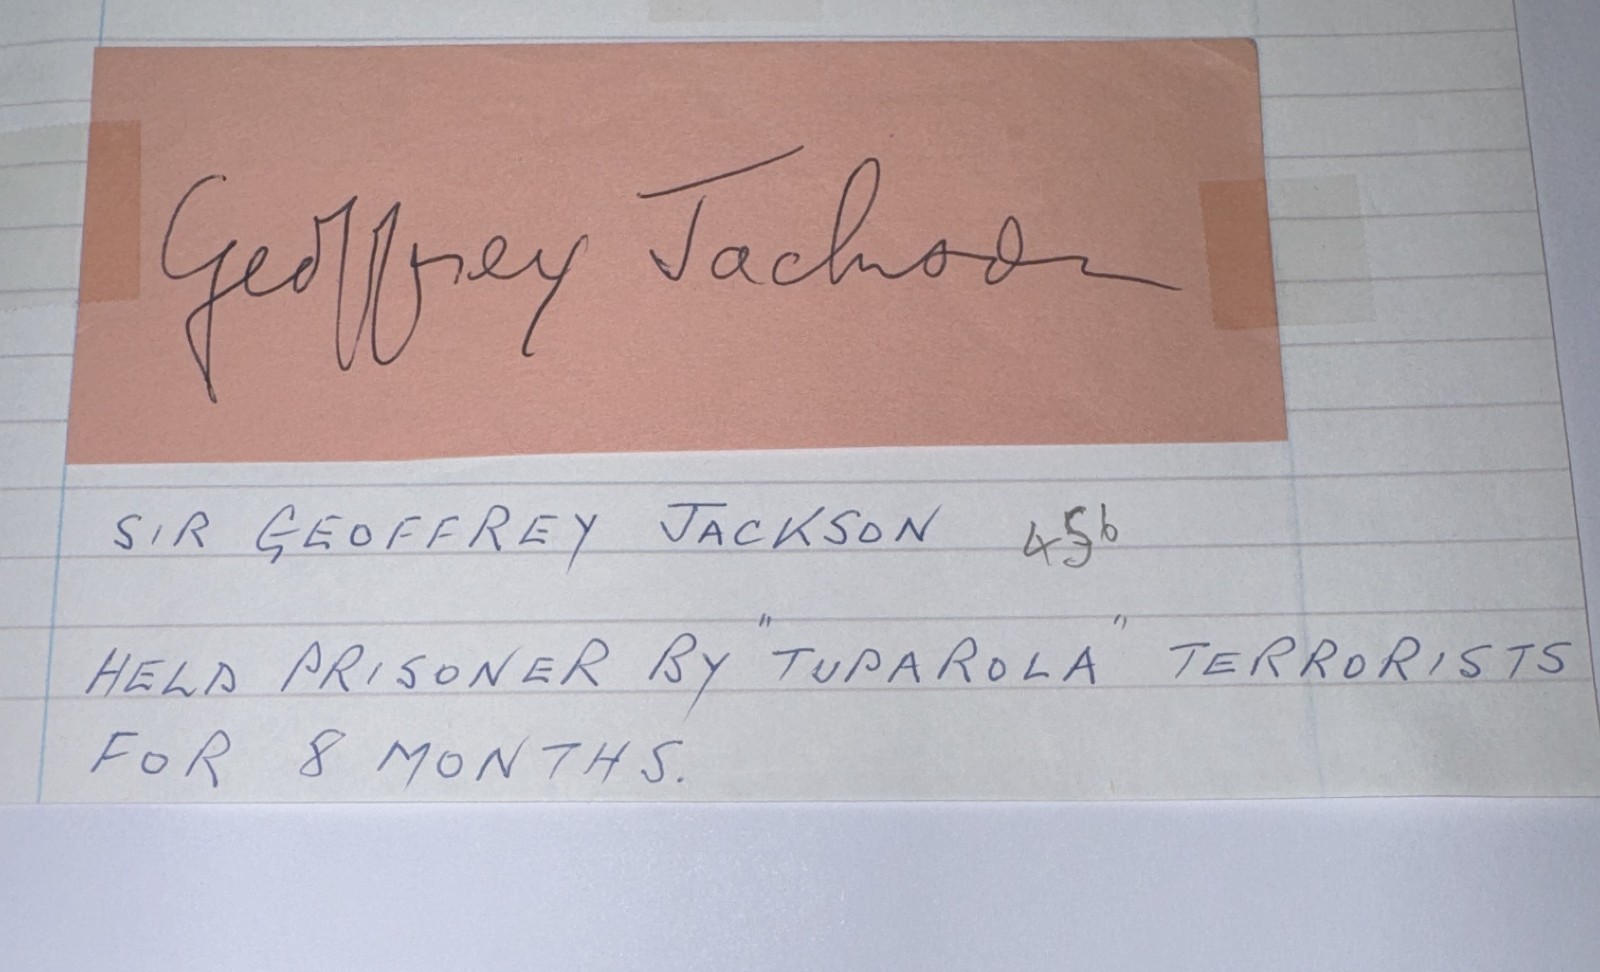 Geoffrey Jackson
SIR GEOFFREY JACKSON 456
HELD PRISONER BY "TUPAROLA" TERRORISTS
FOR 8 MONTHS.